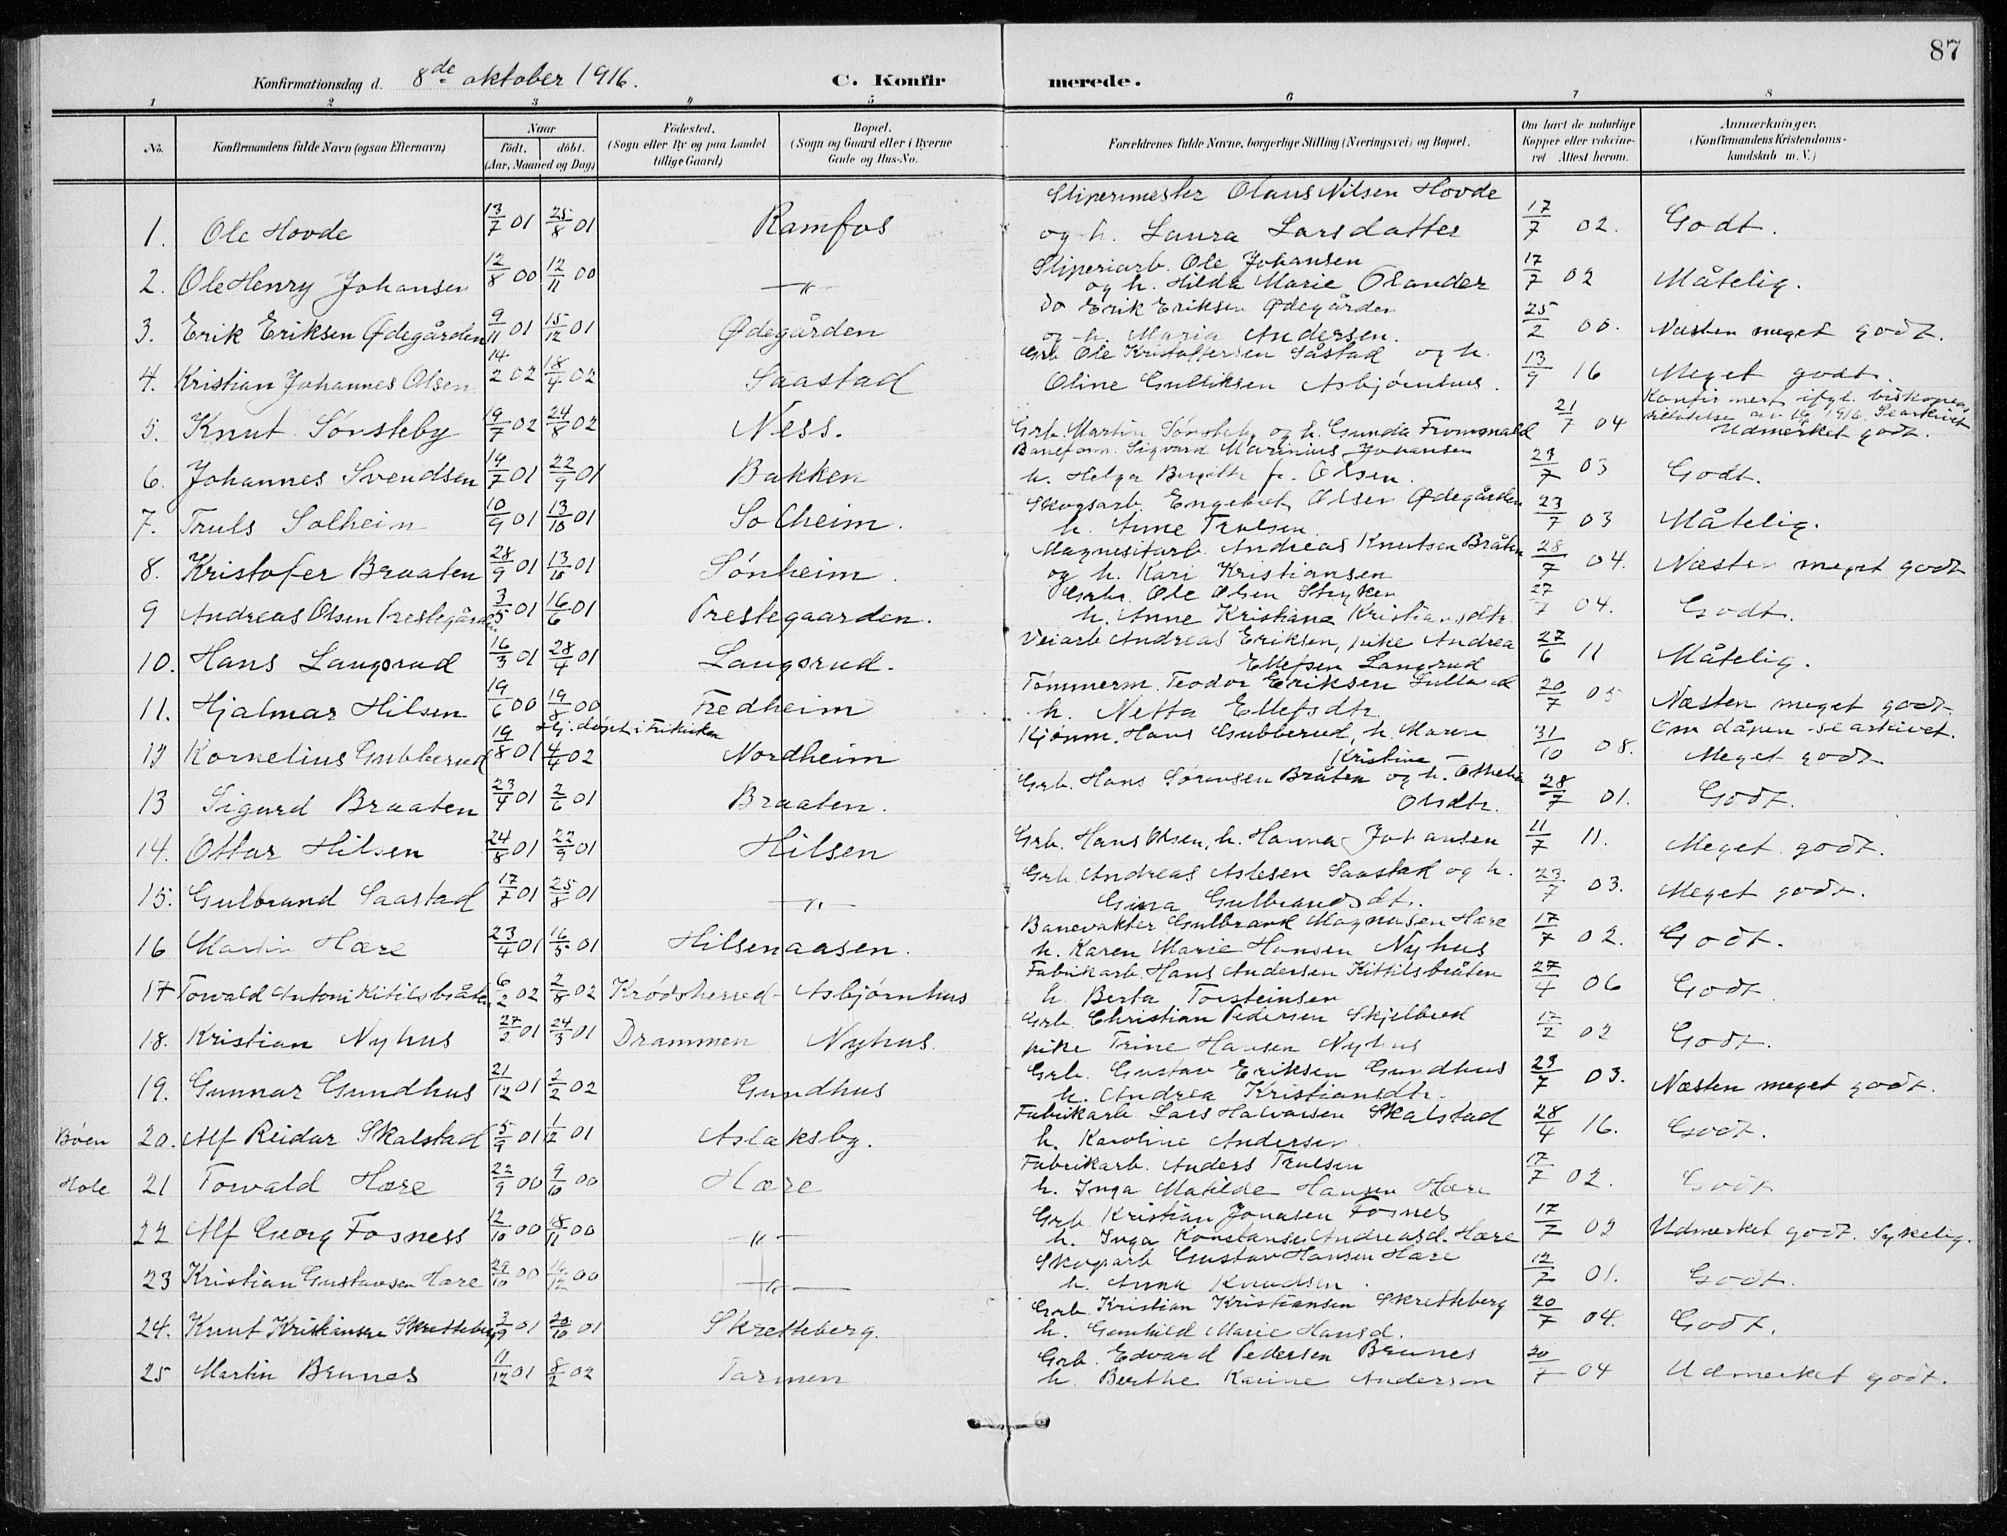 87
Konfirmationsdag d. 8de oktober 1916. C. Konfirmerede.
1 2 3 4 5 6 7 8
No. Konfirmandens fulde Navn (ogsaa Efternavn) Naar födt. döbt. (Aar, Maaned og Dag) Födested. (Sogn eller By og paa Landet tillige Gaard) Bopæl. (Sogn og Gaard eller i Byerne Gade og Hus-No. Forældrenes fulde Navne, borgerlige Stilling (Næringsvei) og Bopæl. Om havt de naturlige Kopper eller vaccineret Attest herom. Anmærkninger. (Konfirmandens Kristendomskundskab m. V.)
1. Ole Hovde 13/7 01 25/8 01 Ramfos Sliperimester Olaus Nilsen Hovde og h. Laura Larsdatter 17/7 02. Godt.
2. Ole Henry Johansen 12/8 00 12/11 00 -"- Sliperiarb. Ole Johansen og h. Hilda Marie Olander 17/7 02 Måtelig.
3. Erik Eriksen Ødegården 9/11 01 15/12 01 Ødegården Do Erik Eriksen Ødegården og h. Maria Andersen. 25/2 Næsten meget godt.
4. Kristian Johannes Olsen 14/2 02 18/4 02 Saastad Grb. Ole Kristoffersen Såstad og h. Oline Gulliksen Asbjørnhus. 13/9 16 Meget godt.
5. Knut Sønsteby 19/7 02 24/8 02 Ness. Grb. Martin Sønsteb og h. Gunda 21/7 04 Konfirmert ifgl. biskopens tilladelse av 1916. Se arkivet Udmerket godt.
6. Johannes Svendsen 14/7 01 22/9 01 Bakken Baneform. Sigvard Marinius Johansen h. Helga f. Olsen. 23/7 03 Godt.
7. Truls Solheim 10/9 01 13/10 01 Solheim. Skogsarb. Engebret Olsen Ødegården h. Anne Trulsen 23/7 03 Måtelig.
8. Kristofer Braaten 28/9 01 13/10 01 Sønheim. Magnesitarb. Andreas Knutsen Bråten og h. Kari Kristiansen 28/7 04. Næsten meget godt
9 Andreas Olsen Prestegården 3/5 01 16/6 01 Prestegaarden. Ole Olsen h. Anne Kristiane Kristiansdtr. 27/7 04. Godt.
10. Hans Langsrud 16/3 01 28/4 01 Langsrud. Veiarb Andreas Eriksen, pike Andrea Ellefsen Langsrud 27/6 11 Måtelig.
11. Hjalmar Hilsen 19/6 00 19/8 00 Fredheim Tømmerm. Teodor Eriksen h. Netta Ellefsdtr. 20/7 05 Næsten meget godt
12 Kornelius Gubberud 19/8 01 4/4 02 Hj. døpt i Frikirken Nordheim Kjørm. Hans Gubberud, h. Maren Kristine 31/10 08. Om dåpen se arkivet. Meget godt
13 Sigurd Braaten 23/4 01 2/6 01 Braaten. Grb. Hans Sørensen Bråten og h. Othelia Olsdtr. 28/7 01. Godt.
14. Ottar Hilsen 24/8 01 22/9 01 Hilsen Grb. Hans Olsen, h. Hanna Johansen 11/7 11. Meget godt.
15. Gulbrand Saastad 17/7 01 25/8 01 -"- Grb. Andreas Aslesen Saastad og h. Gina Gulbrandsdt. 23/7 03. Meget godt.
16 Martin Hære 23/4 01 16/5 01 Hilsenaasen. Banevakter Gulbrand Magnusen Hære h. Karen Marie Hansen Nyhus 17/7 02. Godt.
17 Torvald Anton Kitilsbråten 6/2 02 2/8 02 Krødsherred - Asbjørnhus Fabrikarb. Hans Andersen Kittilsbråten h. Berta Torsteinsen 27/4 06 Godt.
18. Kristian Nyhus 27/2 01 24/3 01 Drammen Nyhus. Grb. Christian Pedersen Skjelbred pike Trine Hansen Nyhus 17/2 02 Godt.
19. Gunnar Gundhus 21/12 01 2/2 02 Gundhus Grb. Gustav Eriksen Gundhus h. Andrea Kristiansdtr. 23/7 03. Næsten meget godt.
Bøen 20. Alf Reidar Skalstad 5/9 01 1/12 01 Aslaksby. Fabrikarb Lars Halvorsen Skalstad h. Karoline Andersen 28/4 16. Godt.
Hole 21 Torvald Hære 22/9 00 9/10 00 Hære Fabrikarb. Anders Trulsen h. Inga Matilde Hansen Hære 17/7 02. Godt
22 Alf Georg Fosness 12/10 00 18/11 00 -"- Grb. Kristian Jonasen Fosnes h. Inga Konstanse Andreasd. Hære 17/7 02 Udmerket godt. Sykelig.
23 Kristian Gustavsen Hære 29/10 00 16/12 00 -"- Skogarb Gustav Hansen Hære h. Anna Knudsen. 12/7 01. Godt.
24. Knut Kristiansen Skretteberg 2/9 01 20/10 01 Skretteberg. Grb. Kristian Kristiansen Skretteberg h. Gunhild Marie Hansd. 20/7 04. Godt.
25 Martin Brunes 11/12 01 8/2 02 Tarmen Grb. Edvard Pedersen Brunes h. Berthe Karine Andersen 20/7 04 Udmerket godt.